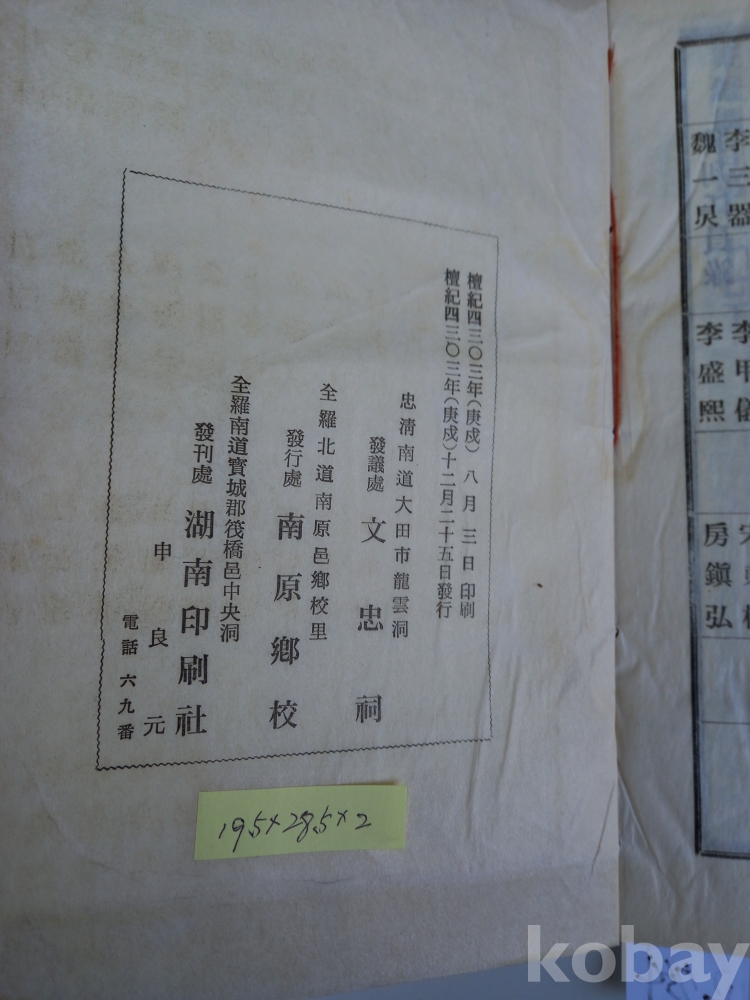 檀紀四三〇三年(庚戌) 八月 三日 印刷
檀紀四三〇三年(庚戌)十二月二十五日發行
忠淸南道大田市龍雲洞
發議處 文忠祠
全羅北道南原邑鄕校里
發行處 南原鄕校
全羅南道寶城郡筏橋邑中央洞
發刊處 湖南印刷社
申良元
電話 六九番
19.5×28.5×2
李三器
魏一炅
李盛熙
房鎭弘
kobay